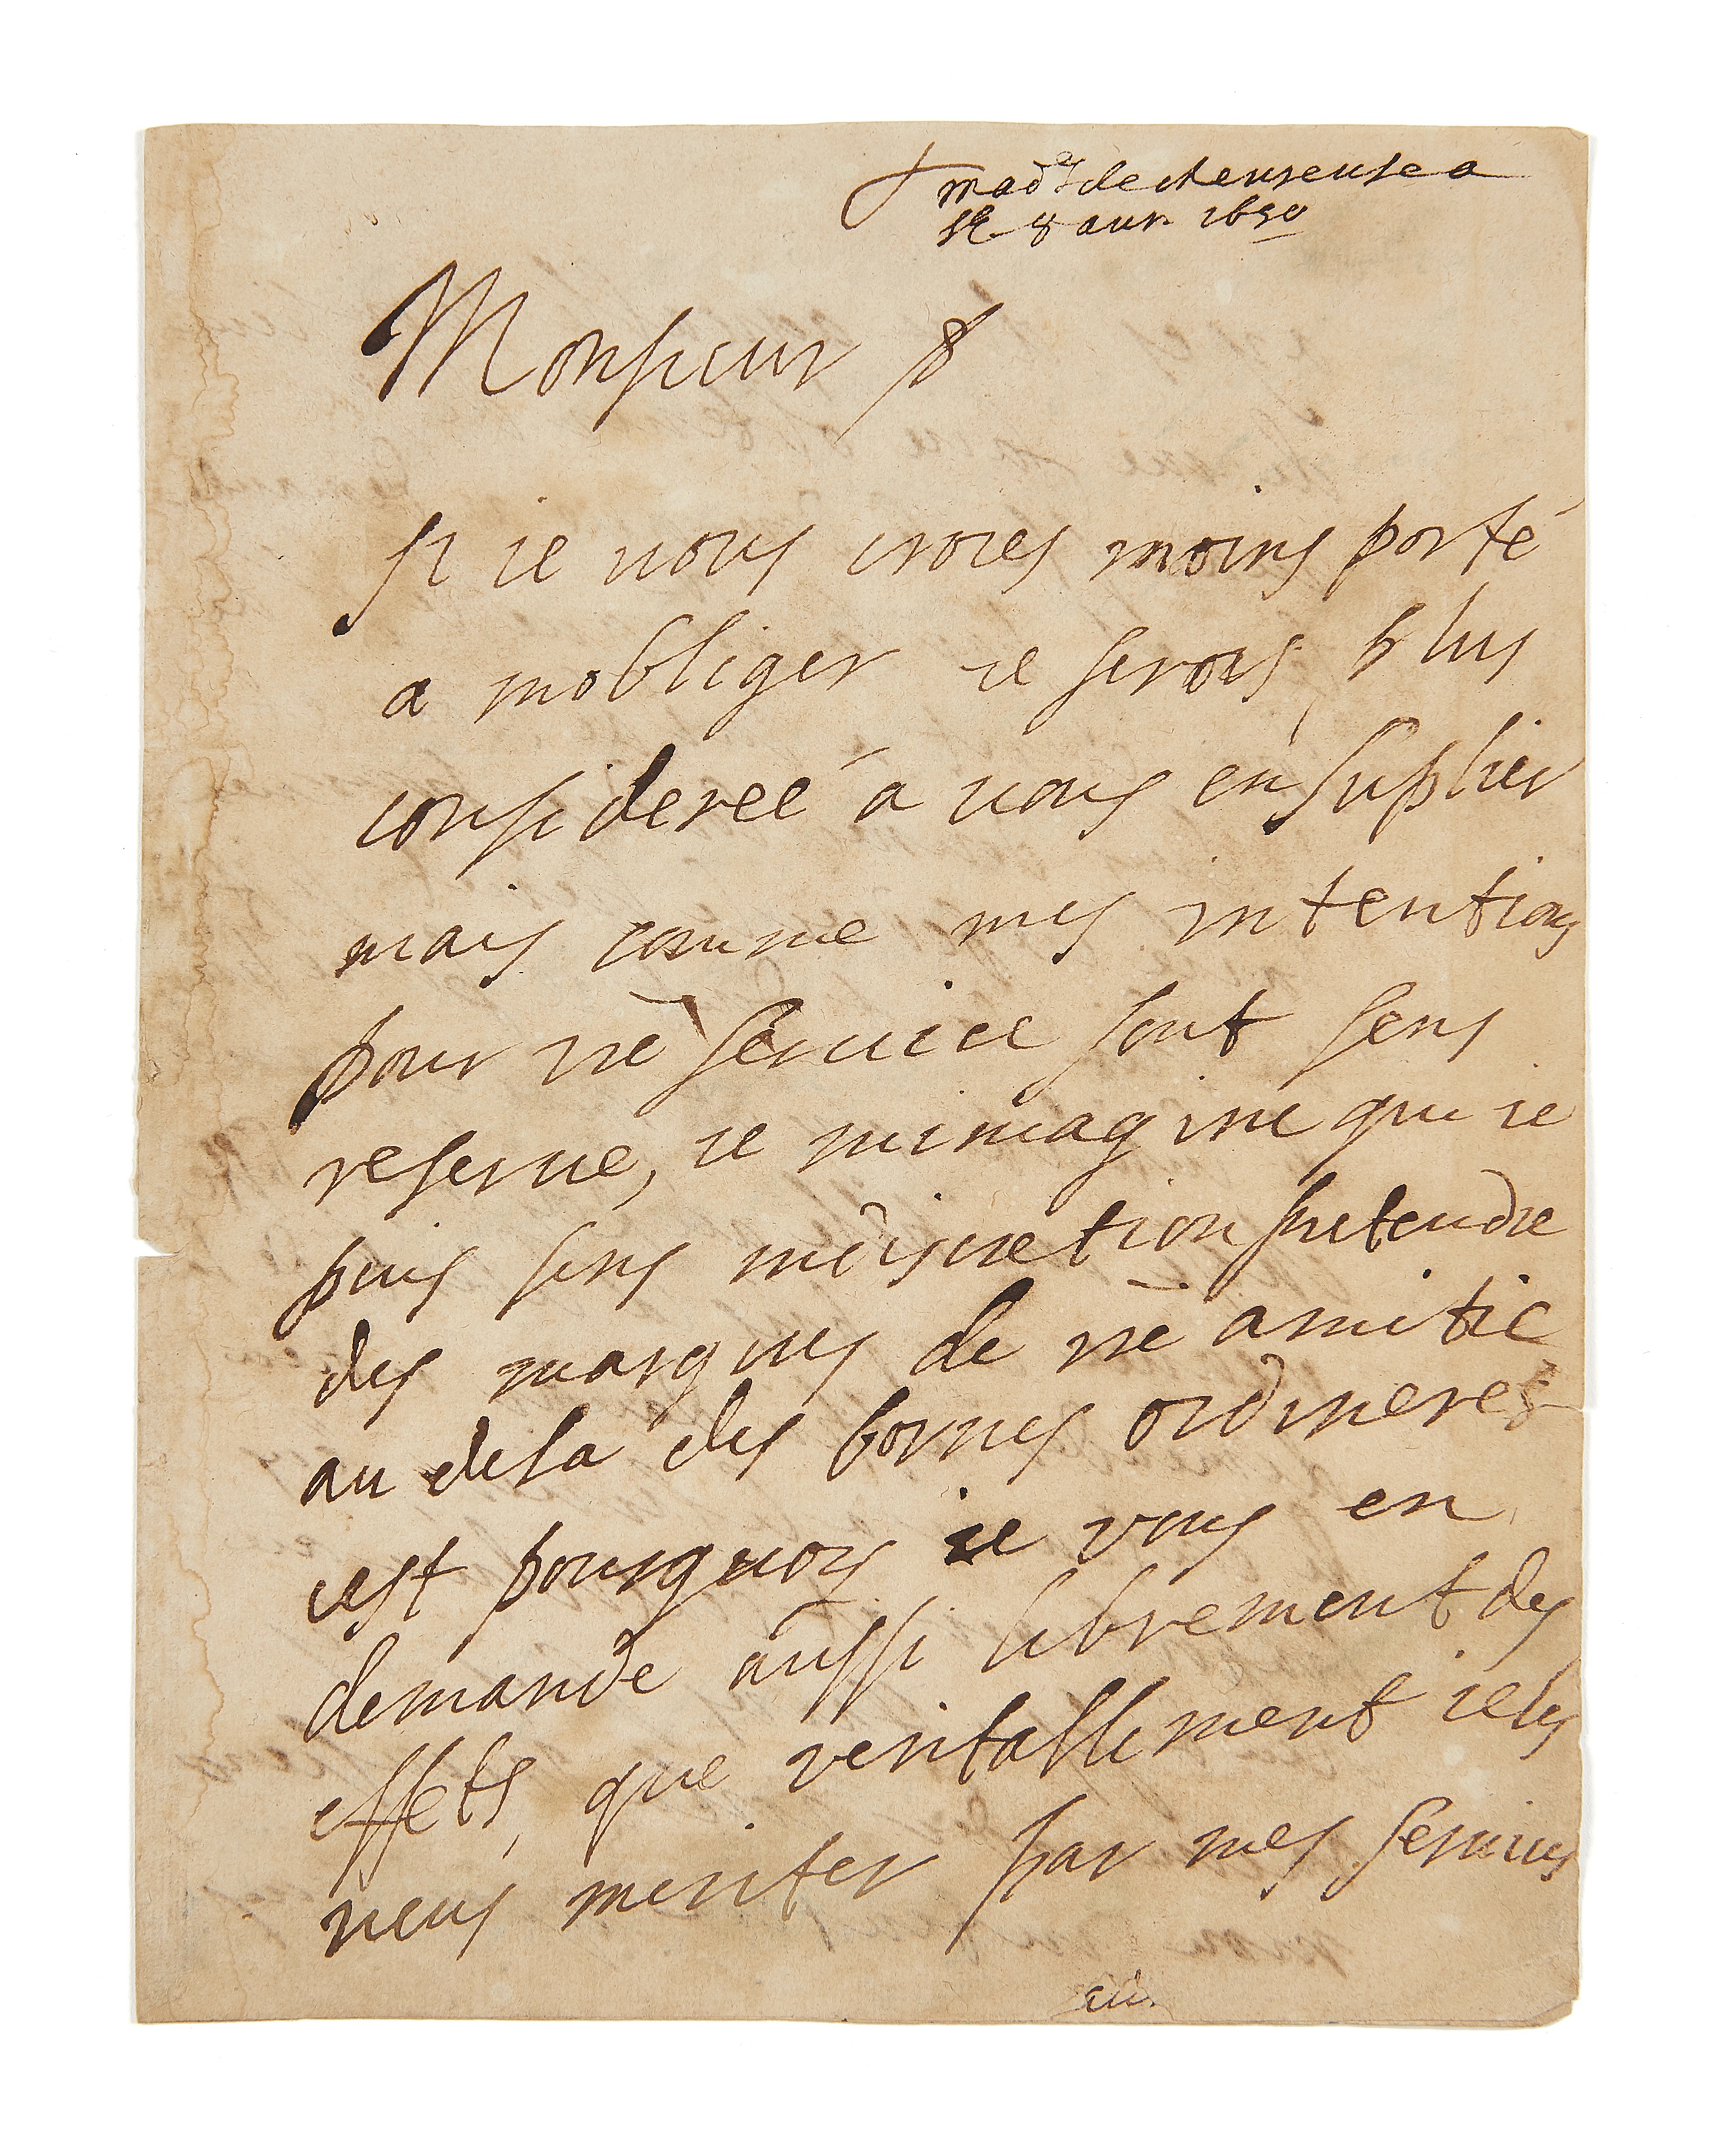 mad^e de cheureuse a
le 8 aur. 1650
Monsieur
si ie uous croies moins porté
a mobliger ie serois plus
consideree a uous en suplier
mais comme mes intentions
pour vre seruice sont sens
reserue, ie mimagine que ie
puis sens indiscretion pretendre
des marques de vre amitie
au dela des bornes ordineres
cest pourquoy ie vous en
demande aussi librement des
effets, que veritablement ie les
veus meriter par mes seruices